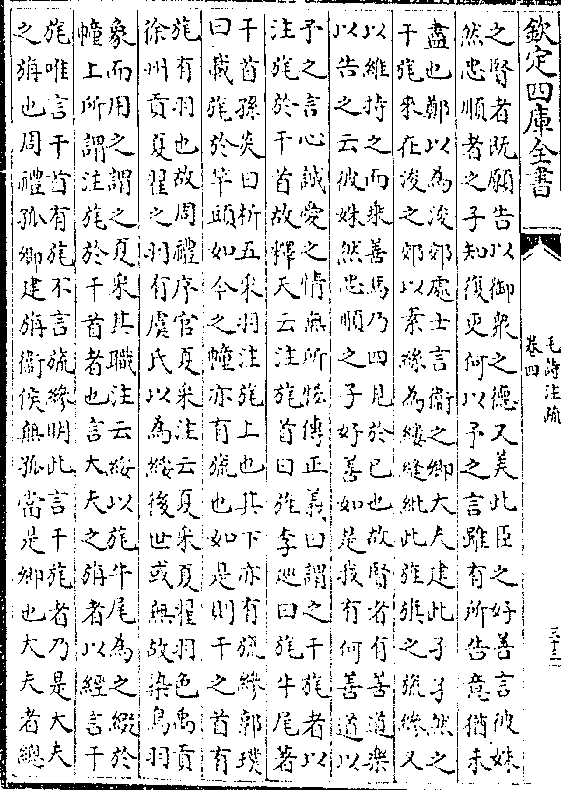 欽定四庫全書
毛詩注疏
卷四
三十二
之賢者既願告以御衆之德又美此臣之好善言彼姝
然忠順者之子知復更何以予之言雖有所告意猶未
盡也鄭以為浚郊處士言衞之卿大夫建此孑孑然之
干旄來在浚之郊以素絲為縷縫紕此旌旗之旒縿又
以維持之而乘善馬乃四見於已也故賢者有善道樂
以告之云彼姝然忠順之子好善如是我有何善道以
予之言心誠愛之情無所恡傳正義曰謂之干旄者以
注旄於干首故釋天云注旄首曰旌李廵曰旄牛尾著
干首孫炎曰析五采羽注旄上也其下亦有旒縿郭璞
曰載旄於竿頭如今之幢亦有旒也如是則干之首有
旄有羽也故周禮序官夏采注云夏采夏翟羽色禹貢
徐州貢夏翟之羽有虞氏以為綏後世或無故染鳥羽
象而用之謂之夏采其職注云綏以旄牛尾為之綴於
幢上所謂注旄於干首者也言大夫之旃者以經言干
旄唯言干首有旄不言旒縿明此言干旄者乃是大夫
之旃也周禮孤卿建旃衞侯無孤當是卿也大夫者總